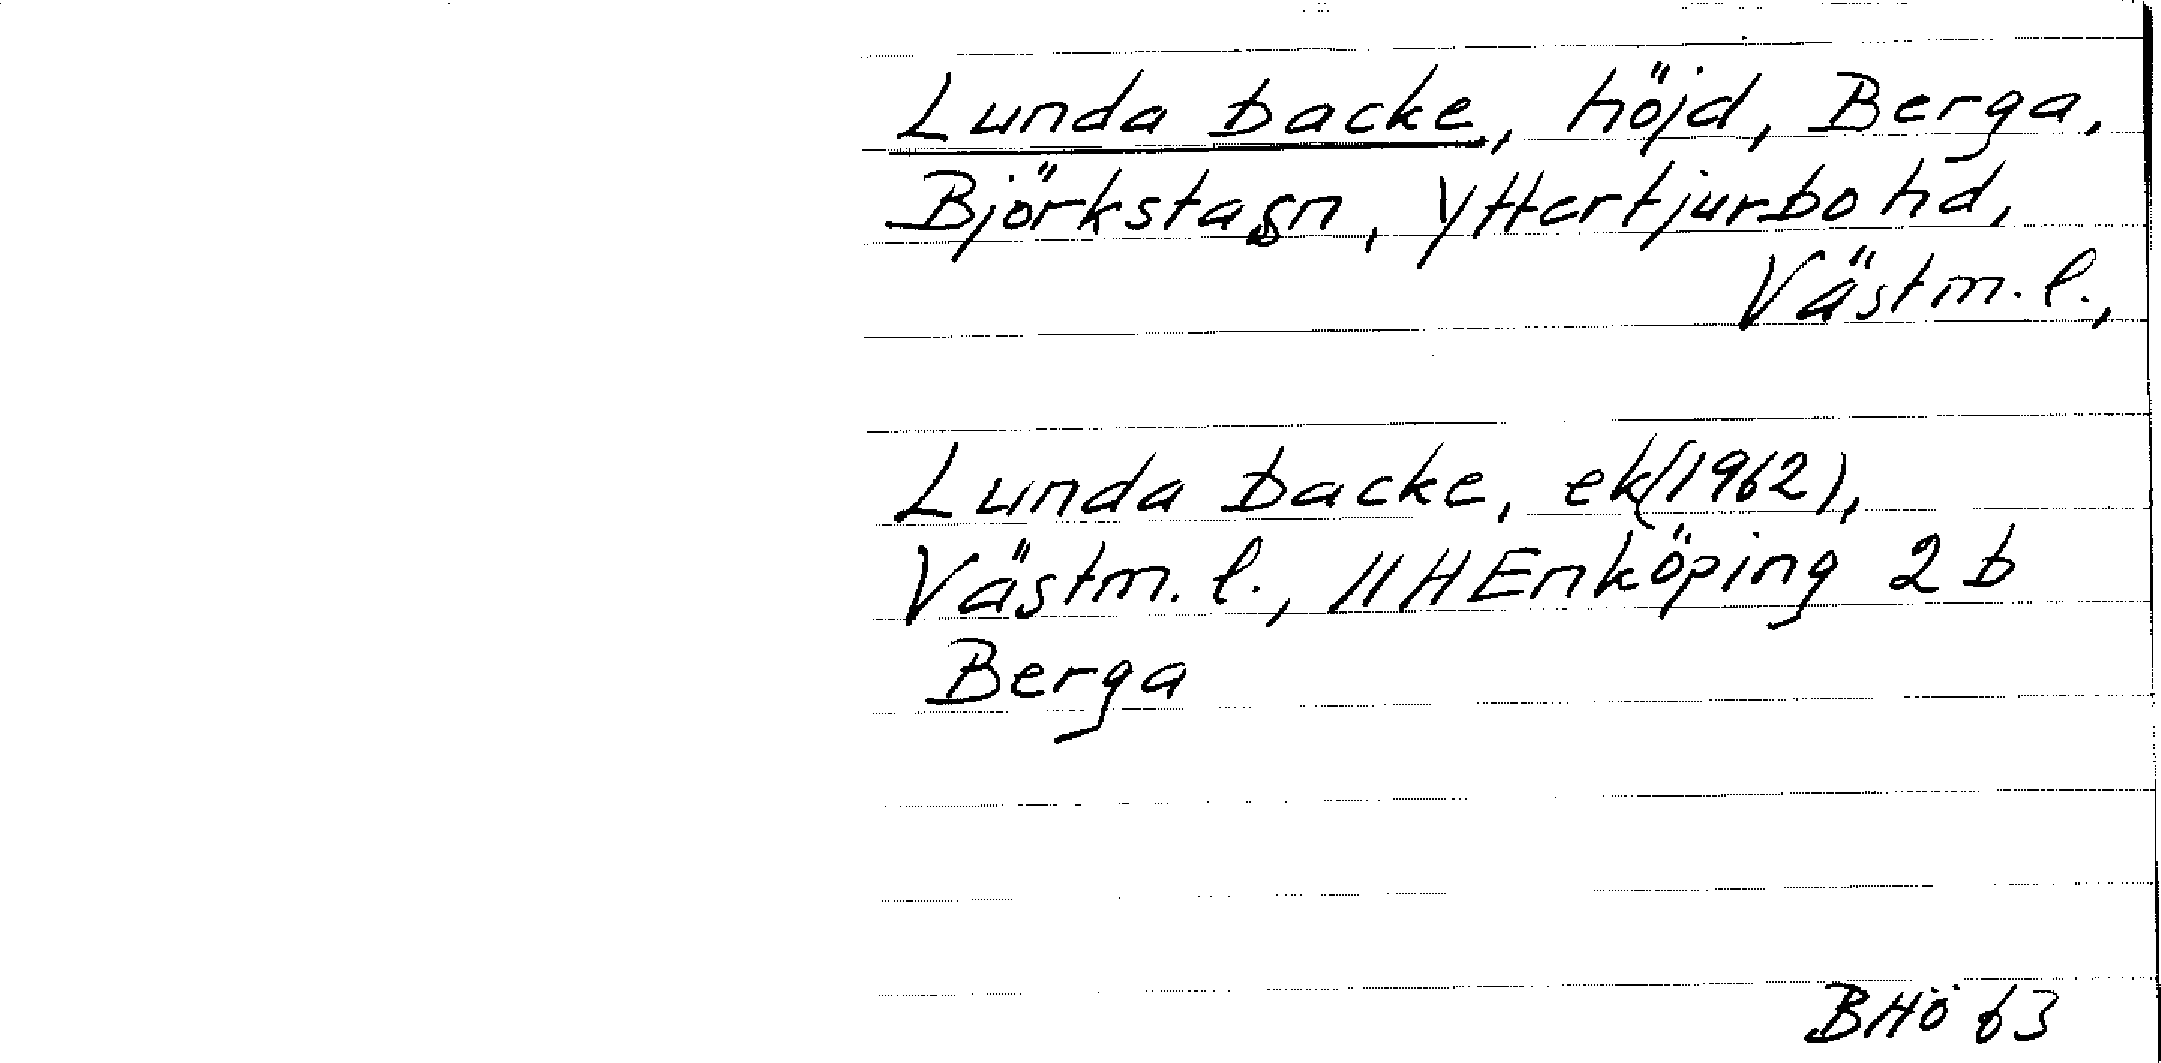 Lunda backe, höjd, Berga,
Björksta sn, Yttertjurbo hd,
Västm. l.,
Lunda backe, ek(1962),
Västm. l., 11H Enköping 2 b
Berga
BHö 63